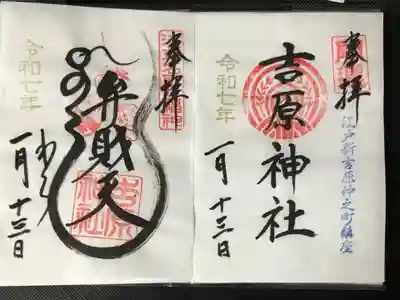 奉拝
江戸新吉原仲之町鎮座
吉原神社
令和七年
一月十三日
奉拝
弁財天
吉原神社
令和七年
一月十三日